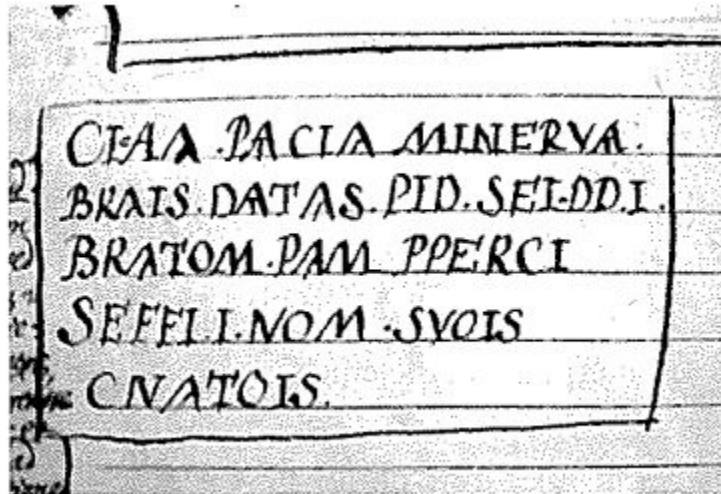 CI·AΛ·PACIA MINERVA.
BRAIS.DATAS.PID.SEI·DD.I.
BRATOM.PAM PPERCI
SEFFI.I.NOM.SVOIS
CNATOIS.